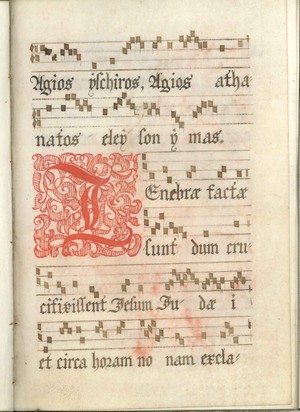 Agios ÿschiros, Agios atha
natos eleÿ son ÿ mas.
TEnebræ factæ
sunt dum cru
cifixissent Jesum Ju- dæ i
et circa horam no nam excla-